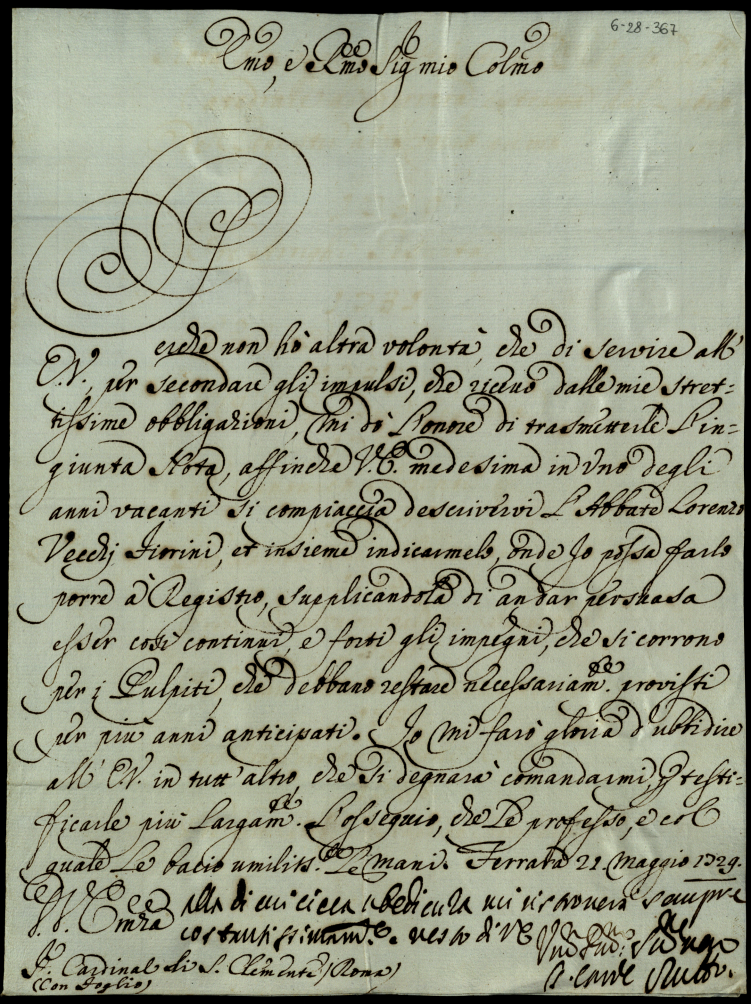 6-28-367
Emo, e Rmo Sig mio Colmo
erche non hò altra volontà, che di servire all'
E.V., per secondare gli impulsi, che ricevo dalle mie stret-
tissime obbligazioni, Mi dò l'onore di trasmetterle l'in-
giunta Nota, affinche V.E. medesima in uno degli
anni vacanti si compiaccia descrivervi l'Abbate Lorenzo
Vecchj Fiorini, et insieme indicarmelo, onde Io possa farlo
porre à Registro, supplicandola di andar persuasa
esser così continui, e forti gli impegni, che si corrono
per i Pulpiti, che debbano restare necessariamte. provisti
per più anni anticipati. Io mi farò gloria d'ubbidire
all' E.V. in tutt'altro, che si degnarà comandarmi, testi-
ficarle più largamte. l'ossequio, che Le professo, e col
quale Le bacio umilite. Le mani. Ferrara 21. Maggio 1729.
alla di cui cieca ubedienza mi ritroverà sempre
costantissimamte. e resto di VE
S. Cardinal di S. Clemente (Roma)
(Con Foglio)